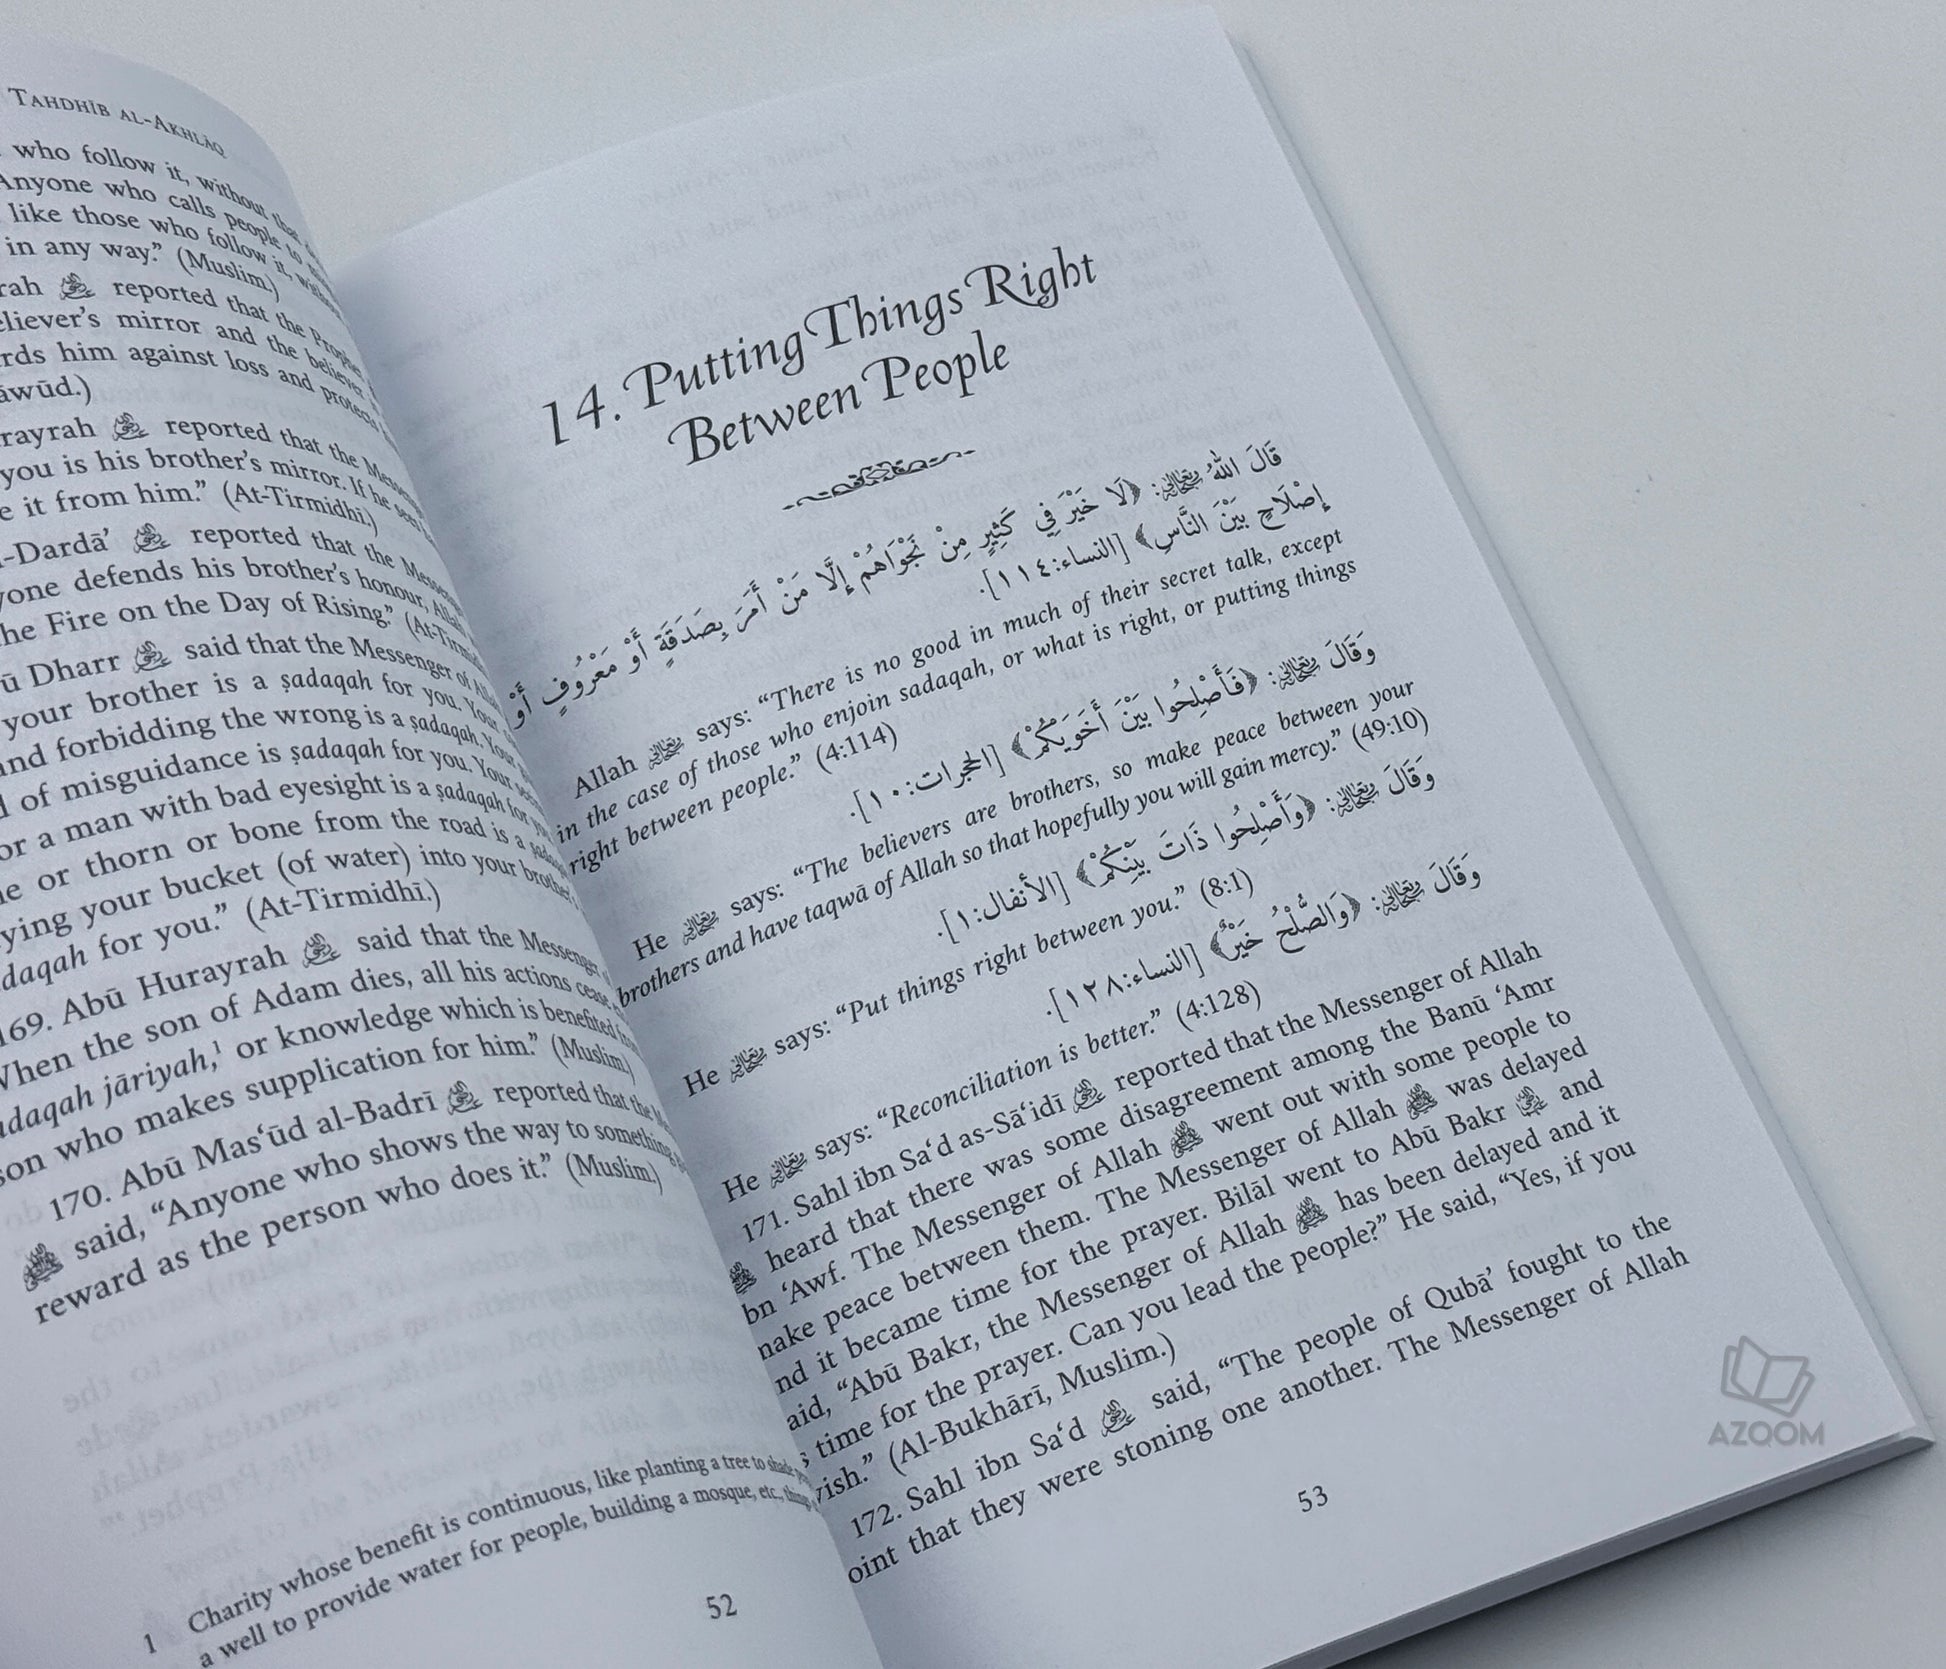 TAHDHĪB AL-AKHLĀQ
who follow it, without that
Anyone who calls people to
like those who follow it,
in any way.” (Muslim.)
rah ﷺ reported that the Prophet
eliever’s mirror and the believer
rds him against loss and protects
āwūd.)
rayrah reported that the
you is his brother’s mirror. If he sees
e it from him.” (At-Tirmidhī.)
-Dardā’ reported that the
yone defends his brother’s honour, Allah
he Fire on the Day of Rising.”
ū Dharr said that the Messenger of
your brother is a ṣadaqah for you. Your
and forbidding the wrong is a ṣadaqah. Your
d of misguidance is ṣadaqah for you. Your
or a man with bad eyesight is a ṣadaqah for
ne or thorn or bone from the road is a
ying your bucket (of water) into your
daqah for you.” (At-Tirmidhī.)
169. Abū Hurayrah said that the Messenger of
When the son of Adam dies, all his actions cease
adaqah jāriyah,¹ or knowledge which is benefited from
son who makes supplication for him.” (Muslim.)
170. Abū Mas‘ūd al-Badrī reported that the
ﷺ said, “Anyone who shows the way to something
reward as the person who does it.” (Muslim.)
1 Charity whose benefit is continuous, like planting a tree to shade
a well to provide water for people, building a mosque, etc.,
52
14. Putting Things Right
Between People
قَالَ اللهُ تَعَالَى: ﴿لَا خَيْرَ فِي كَثِيرٍ مِنْ نَجْوَاهُمْ إِلَّا مَنْ أَمَرَ بِصَدَقَةٍ أَوْ مَعْرُوفٍ أَوْ
إِصْلَاحٍ بَيْنَ النَّاسِ﴾ [النساء:١١٤].
Allah says: “There is no good in much of their secret talk, except
in the case of those who enjoin sadaqah, or what is right, or putting things
right between people.” (4:114)
وَقَالَ تَعَالَى: ﴿فَأَصْلِحُوا بَيْنَ أَخَوَيْكُمْ﴾ [الحجرات:١٠].
He says: “The believers are brothers, so make peace between your
brothers and have taqwā of Allah so that hopefully you will gain mercy.” (49:10)
وَقَالَ تَعَالَى: ﴿وَأَصْلِحُوا ذَاتَ بَيْنِكُمْ﴾ [الأنفال:١].
He says: “Put things right between you.” (8:1)
وَقَالَ تَعَالَى: ﴿وَالصُّلْحُ خَيْرٌ﴾ [النساء:١٢٨].
He says: “Reconciliation is better.” (4:128)
171. Sahl ibn Sa‘d as-Sā‘idī reported that the Messenger of Allah
ﷺ heard that there was some disagreement among the Banū ‘Amr
bn ‘Awf. The Messenger of Allah ﷺ went out with some people to
make peace between them. The Messenger of Allah ﷺ was delayed
nd it became time for the prayer. Bilāl went to Abū Bakr and
aid, “Abū Bakr, the Messenger of Allah ﷺ has been delayed and it
s time for the prayer. Can you lead the people?” He said, “Yes, if you
wish.” (Al-Bukhārī, Muslim.)
172. Sahl ibn Sa‘d said, “The people of Qubā’ fought to the
oint that they were stoning one another. The Messenger of Allah
53
AZOOM